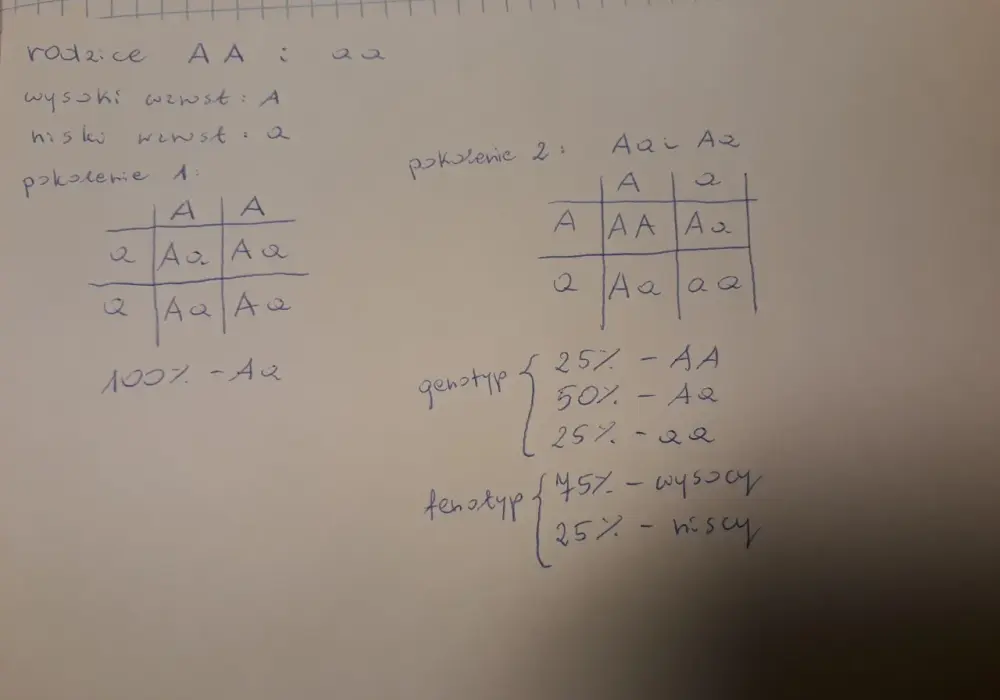 rodzice AA i aa
wysoki wzrost: A
niski wzrost: a
pokolenie 1:
A A
a Aa Aa
a Aa Aa
100% - Aa
pokolenie 2: Aa i Aa
A a
A AA Aa
a Aa aa
genotyp { 25% - AA
50% - Aa
25% - aa
fenotyp { 75% - wysocy
25% - niscy